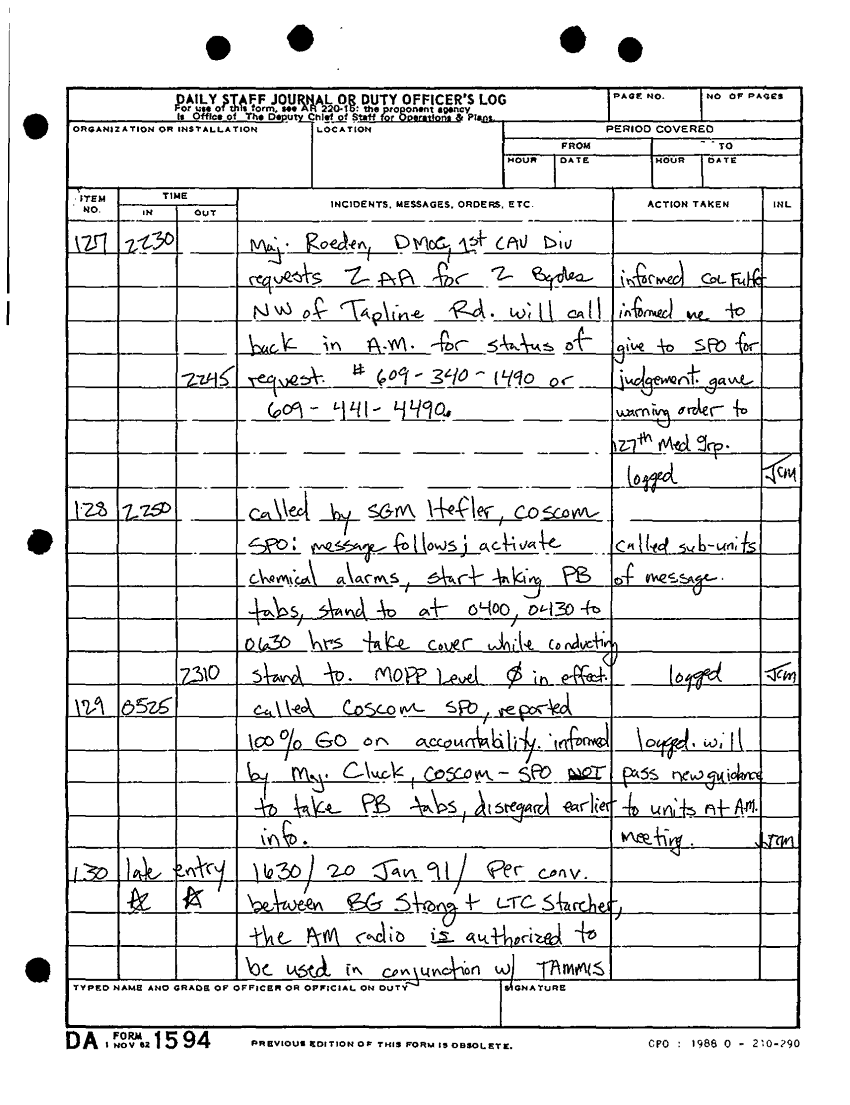 DAILY STAFF JOURNAL OR DUTY OFFICER'S LOG
For use of this form, see AR 220-15: the proponent agency
is Office of The Deputy Chief of Staff for Operations & Plans.
PAGE NO. NO OF PAGES
ORGANIZATION OR INSTALLATION LOCATION PERIOD COVERED
FROM TO
HOUR DATE HOUR DATE
ITEM NO. TIME INCIDENTS, MESSAGES, ORDERS, ETC. ACTION TAKEN INL
IN OUT
127 2230 Maj. Roeden, DMOC, 1st CAV Div
requests 2 AA for 2 Bgdes informed COL
NW of Tapline Rd. will call informed me to
back in A.M. for status of give to SPO for
2245 request. # 609-340-1490 or judgement. gave
609-441-4490. warning order to
127th Med Grp.
logged JCM
128 2250 called by SGM Hefler, COSCOM
SPO: message follows; activate called sub-units
chemical alarms, start taking PB of message.
tabs, stand to at 0400, 0430 to
0630 hrs take cover while conducting
2310 stand to. MOPP Level Ø in effect. logged JCM
129 0525 called COSCOM SPO, reported
100% GO on accountability. informed logged. will
by Maj. Cluck, COSCOM-SPO NOT pass new guidance
to take PB tabs, disregard earlier to units at AM.
info. meeting. JCM
130 late entry 1630/ 20 Jan 91/ Per conv.
☆ ☆ between BG Strong + LTC Starcher,
the AM radio is authorized to
be used in conjunction w/ TAMMIS
TYPED NAME AND GRADE OF OFFICER OR OFFICIAL ON DUTY SIGNATURE
DA FORM 1 NOV 62 1594 PREVIOUS EDITION OF THIS FORM IS OBSOLETE. GPO : 1988 O - 210-290